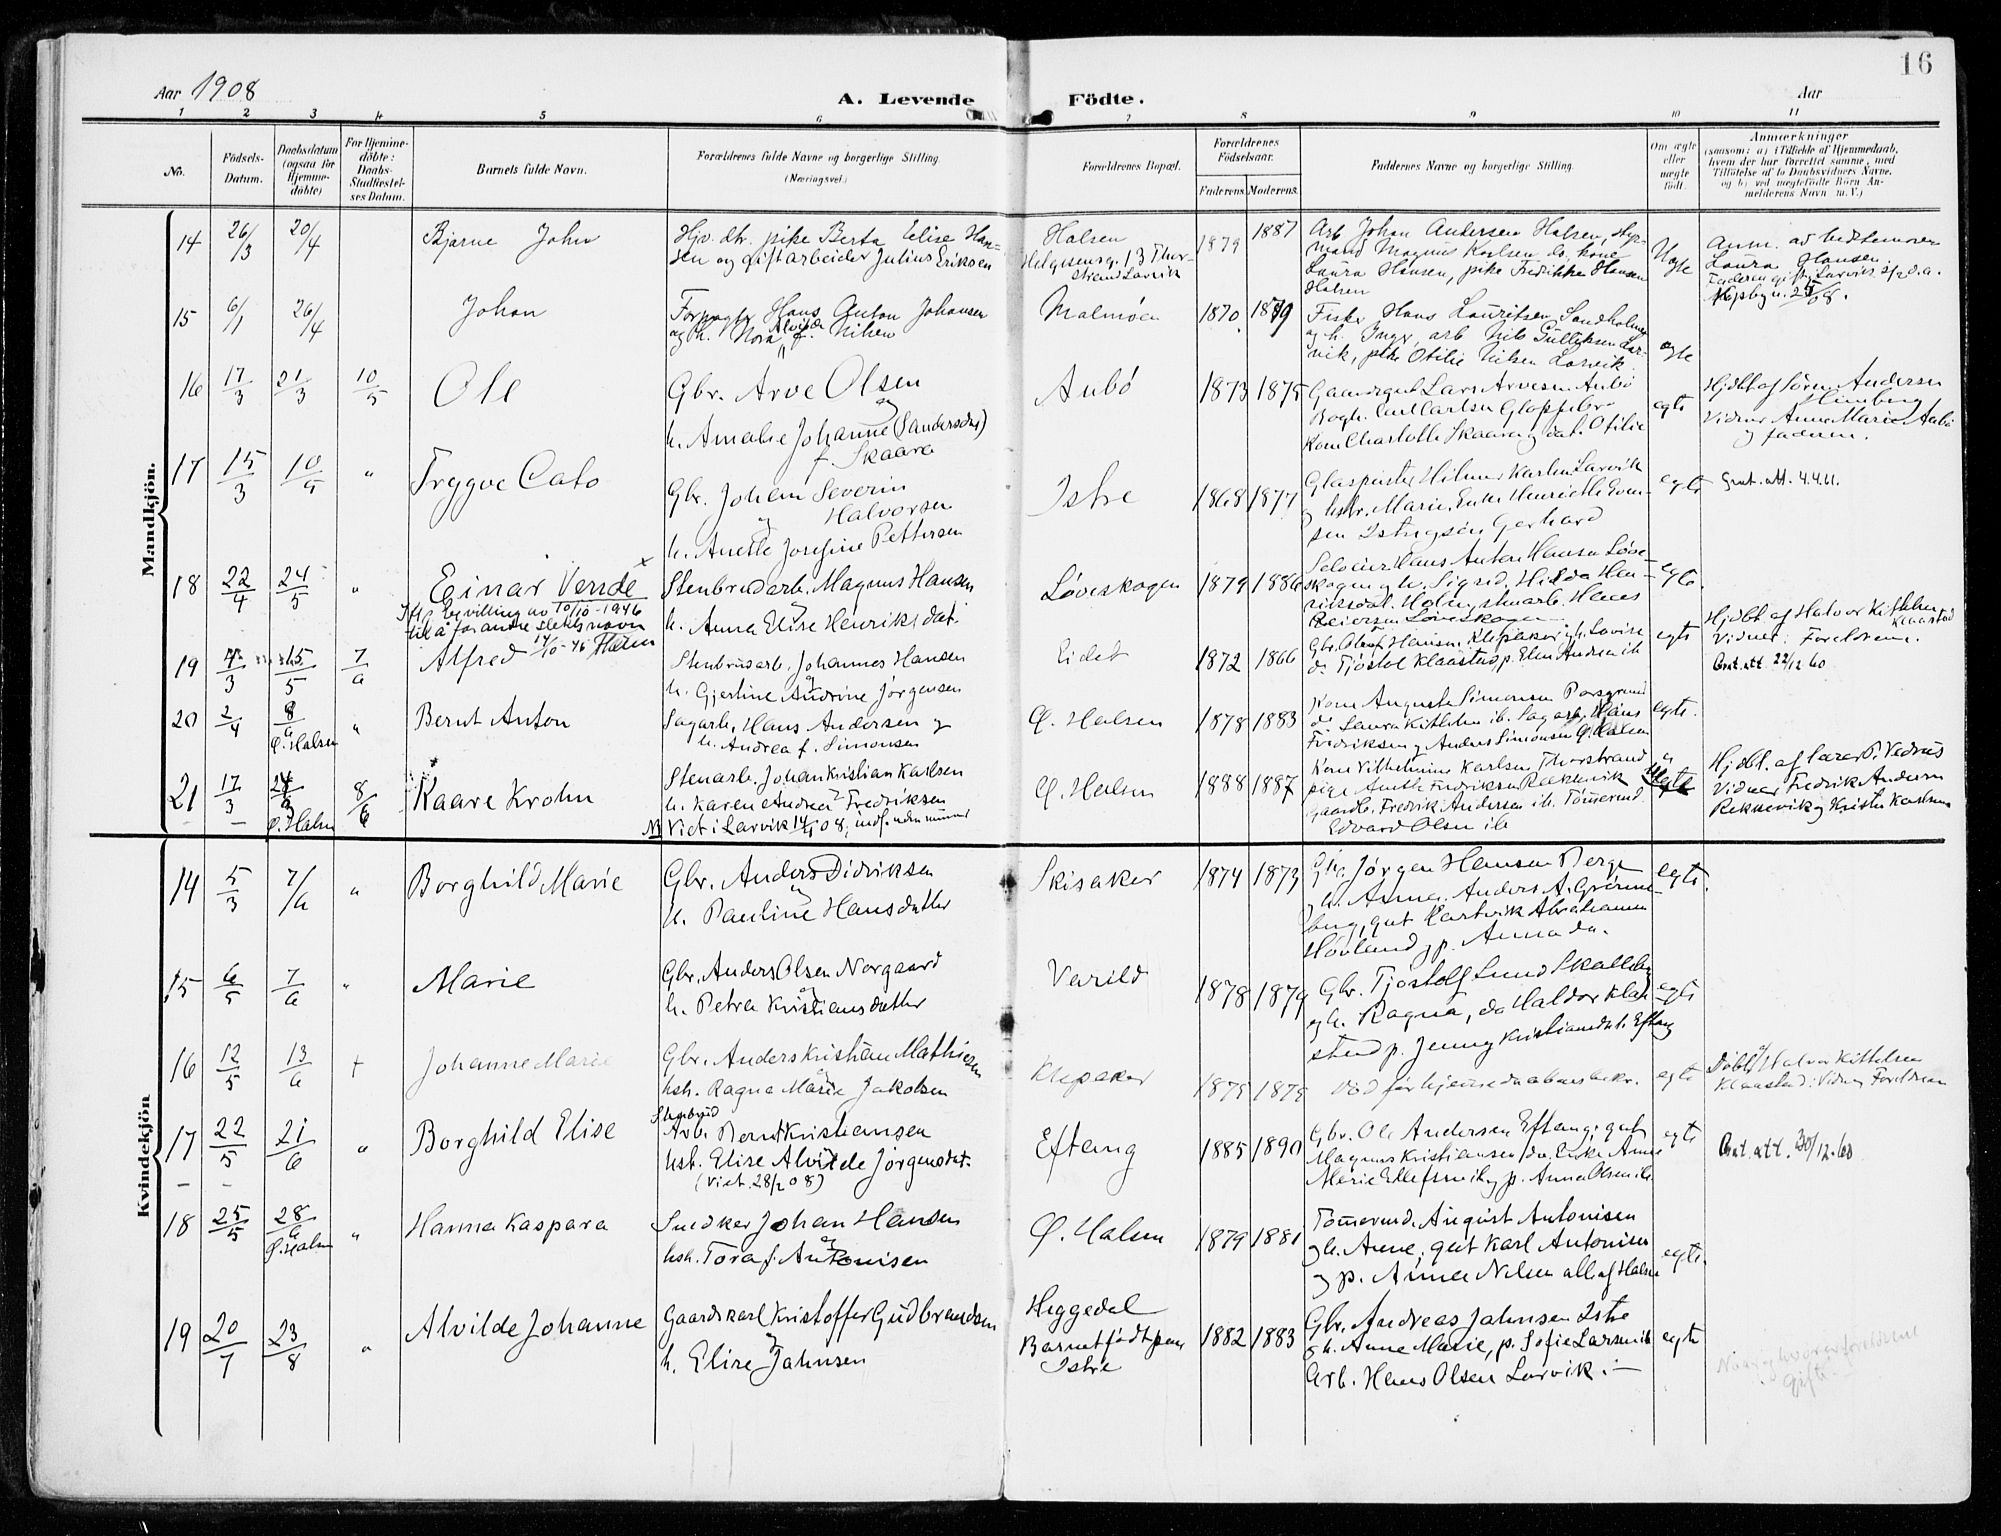 16
Aar 1908
A. Levende Födte.
Aar
1 2 3 4 5 6 7 8 9 10 11
No.
Födsels-
Datum.
Daabsdatum
(ogsaa for
Hjemme-
döbte)
For Hjemme-
döbte:
Daabs-
Stadfæstel-
ses Datum.
Barnets fulde Navn.
Forældrenes fulde Navne og borgerlige Stilling.
(Næringsvei.)
Forældrenes Bopæl.
Forældrenes
Födselsaar.
Faderens. Moderens.
Faddernes Navne og borgerlige Stilling.
Om ægte
eller
uægte
födt.
Anmærkninger
(saasom: a) i Tilfælde af Hjemmedaab,
hvem der har forrettet samme, med
Tilföielse af to Daabsvidners Navne,
og b) ved uægtefödte Börn An-
melderens Navn m. V.)
Mandkjön.
14
26/3
20/4
Bjarne John
Hjv. dtr. pike Berta Elise Han-
sen og gift arbeider Julius Eriksen
Halsen
Helgesensg. 13 Thor-
strand Larvik
1879
1887
Arb Johan Andersen Halsen,
mand Magnus Karlsen do, kone
Laura Hansen, pike Fredrikke Hansen
Halsen
Uegte
Anm. av bedstemoren
Laura Hansen.
15
6/1
26/4
Johan
Hans Anton Johansen
og h. Nora Alvilde f. Nilsen
Malmøen
1870
1879
Fisker Hans Lauritsen Sandholmen
og h. Inga, arb Nils Gulliksen Lar-
vik, pike Otilie Nilsen Larvik
egte
16
17/3
21/3
10/5
Ole
Gbr. Arve Olsen
og
h. Amalie Johanne (Sandersdat)
f. Skaara
Aubö
1873
1875
Gaardgut Lars Arvesen Aubö
Kone Charlotte Skaara og dat. Otilie
egte
Hjdbt af Sören Andersen
Himberg
Vidner Anne Marie Aubö
og faderen.
17
15/3
"
Trygve Cato
Gbr. Johan Severin
Halvorsen
og
h. Anette Josefine Pettersen
Istre
1868
1877
Glaspuster Hilmar Karlsen Larvik
og hstr. Marie, Enke Henriette Even-
sen Istre Gerhard
egte
Grat. att. 4.4.61.
18
22/4
24/5
"
Einar Verdè
Ifl. bevilling av 10/10-1946
til å forandre slektsnavn
Stenbrudarb. Magnus Hansen
og
h. Anna Elise Henriksdat.
Løveskogen
1879
1886
Hans Anton Hansen Løve-
skogen og h. Sigrid, Hilda Hen-
riksdat. Holm, stenarb. Hans
Reiersen Løveskogen
egte.
19
15/5
Alfred
Stenbrudarb. Johannes Hansen
og
h. Gjertine Andrine Jørgensen
Eidet
1872
1866
Gbr. Oluf Hansen Klepaker og h. Lovise
do. Tjøstol Klaastad p. Elen Andrea ib
egte
Hjdbt. af Halvor Kittelsen
Klaastad
Vidner: Foreldrene.
Grat. att. 22/12 60
20
2/4
8/6
Ø. Halsen
"
Bernt Anton
Sagarb. Hans Andersen og
h. Andrea f. Simonsen
Ø. Halsen
1878
1883
Kone Auguste Simonsen Porsgrund
do Laura Kittelsen ib. Sagarb. Hans
Fredriksen og Anders Simonsen Ø. Halsen
egte.
21
17/3
Ø. Halsen
8/6
Kaare Krohn
Stenarb. Johan Kristian Karlsen
og
h. Karen Andrea Fredriksen
NB Viet i Larvik
Ø. Halsen
1888
1887
Kone Vilhelmine Karlsen Thorstrand
pige Anette Fredriksen Rekkevik
gaardbr. Fredrik Andersen ib. Tömmermd.
Edvard Olsen ib
Uegte
Hjdbt. af lærer P. Vedvis
Vidner Fredrik Andersen
Rekkevik og Kristen Karlsen
Kvindekjön
14
5/3
7/6
"
Borghild Marie
Gbr. Anders Didriksen
og
h. Pauline Hansdatter
Skisaker
1874
1873
Gbr. Jørgen Hansen Berge
og h. Anna. Anders A. Grönne-
berg, gut Hartvik Abrahamsen
Hövland og p. Anna do.
egte.
15
6/5
7/6
"
Marie
Gbr. Anders Olsen Norgaard
og
h. Petra Kristiansdatter
Varild
1878
1879
Gbr. Tjøstolf Lund Skalleberg
og h. Ragna, do Haldor Klaa-
stad p. Jenny Kristiansdat. Eftang
egte
16
12/5
13/6
+
Johanne Marie
Gbr. Anders Kristian Mathisen
og
hst. Ragna Marie Jakobsen
Klepaker
1875
1875
Död før hjemmedaabens bekr.
egte
Döbt af Halvor Kittelsen
Klaastad: Vidner Foreldrene
17
22/5
21/6
"
Borghild Elise
Stenbrud
Arb. Bernt Kristiansen
hst. Elise Alvilde Jørgensdat.
(viet 28/2 08)
Eftang
1885
1890
Gbr. Ole Andersen Eftang, gut
Magnus Kristiansen do. Enke Anne
Marie Ellefsen ib og p. Anna Olsen ib.
egte
Grat. att. 30/12.60
18
25/5
28/6
Ø. Halsen
"
Hanna Kaspara
Snedker Johan Hansen
og
hst. Tora f. Antonisen
Ø. Halsen
1879
1881
Tömmermd. August Antonisen
og h. Anne, gut Karl Antonisen
og p. Anna Nilsen alle af Halsen
egte.
19
20/7
23/8
"
Alvilde Johanne
Gaardskarl Kristoffer Gudbrandsen
og
h. Elise Jahnsen
Heggedal
Barnet födt paa
Istre
1882
1883
Gbr. Andreas Jahnsen Istre
og h. Anne Marie, p. Sofie Larsen ib
Arb. Hans Olsen Larvik.—
egte
Naar og hvor er foreldrene
gift?